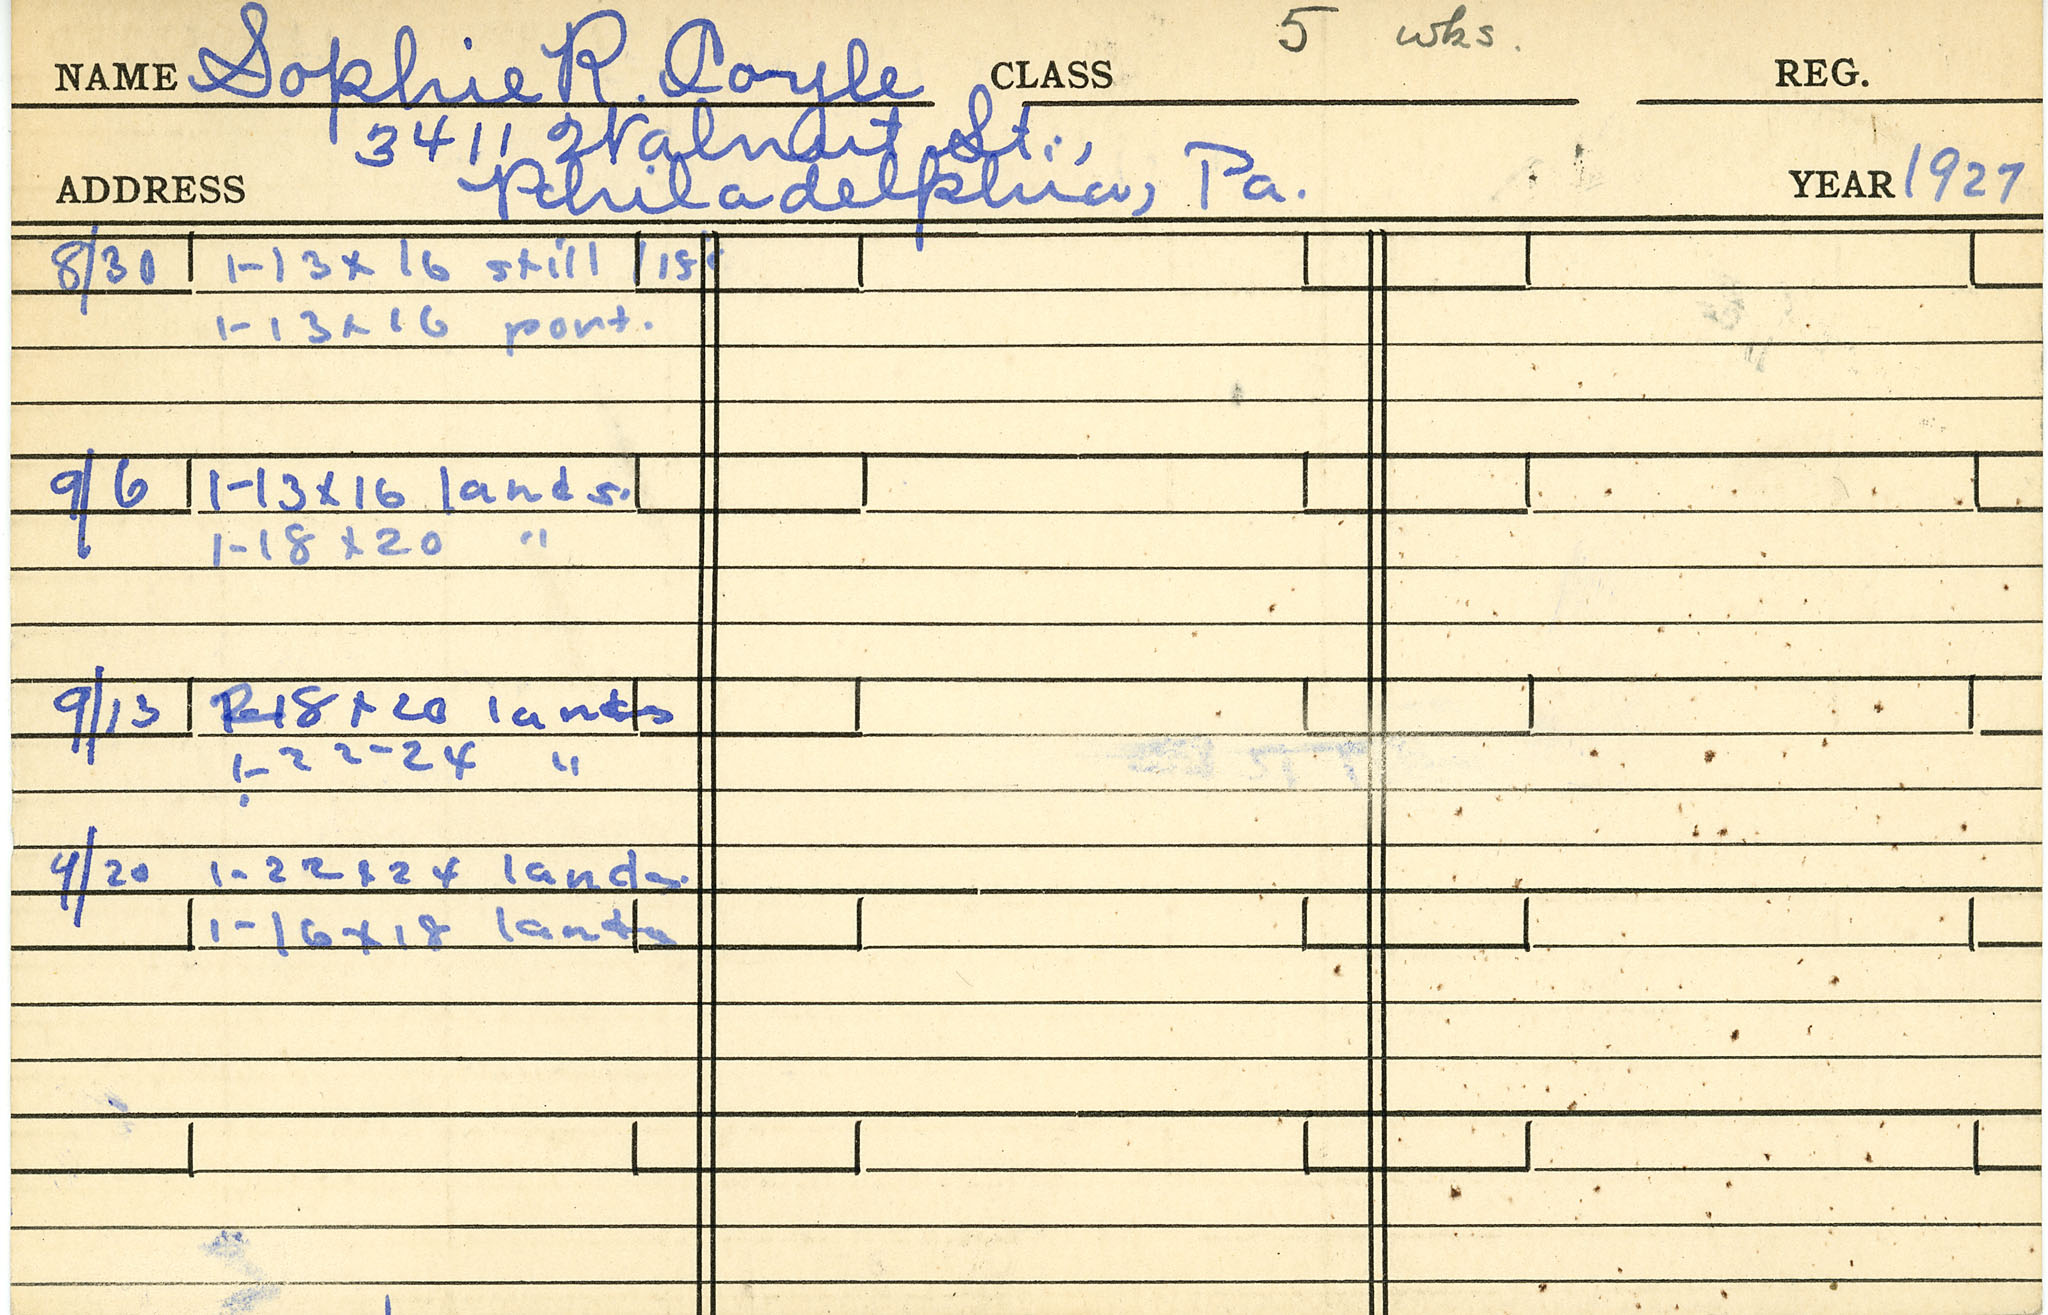 5 wks.
NAME Sophie R. Coyle CLASS REG.
3411 Walnut St.,
ADDRESS Philadelphia, Pa. YEAR 1927
8/30 1-13x16 still
1-13x16 port.
9/6 1-13x16 lands.
1-18x20 "
9/13 18x20 lands
1-22-24 "
9/20 1-22x24 lands.
1-16x18 lands